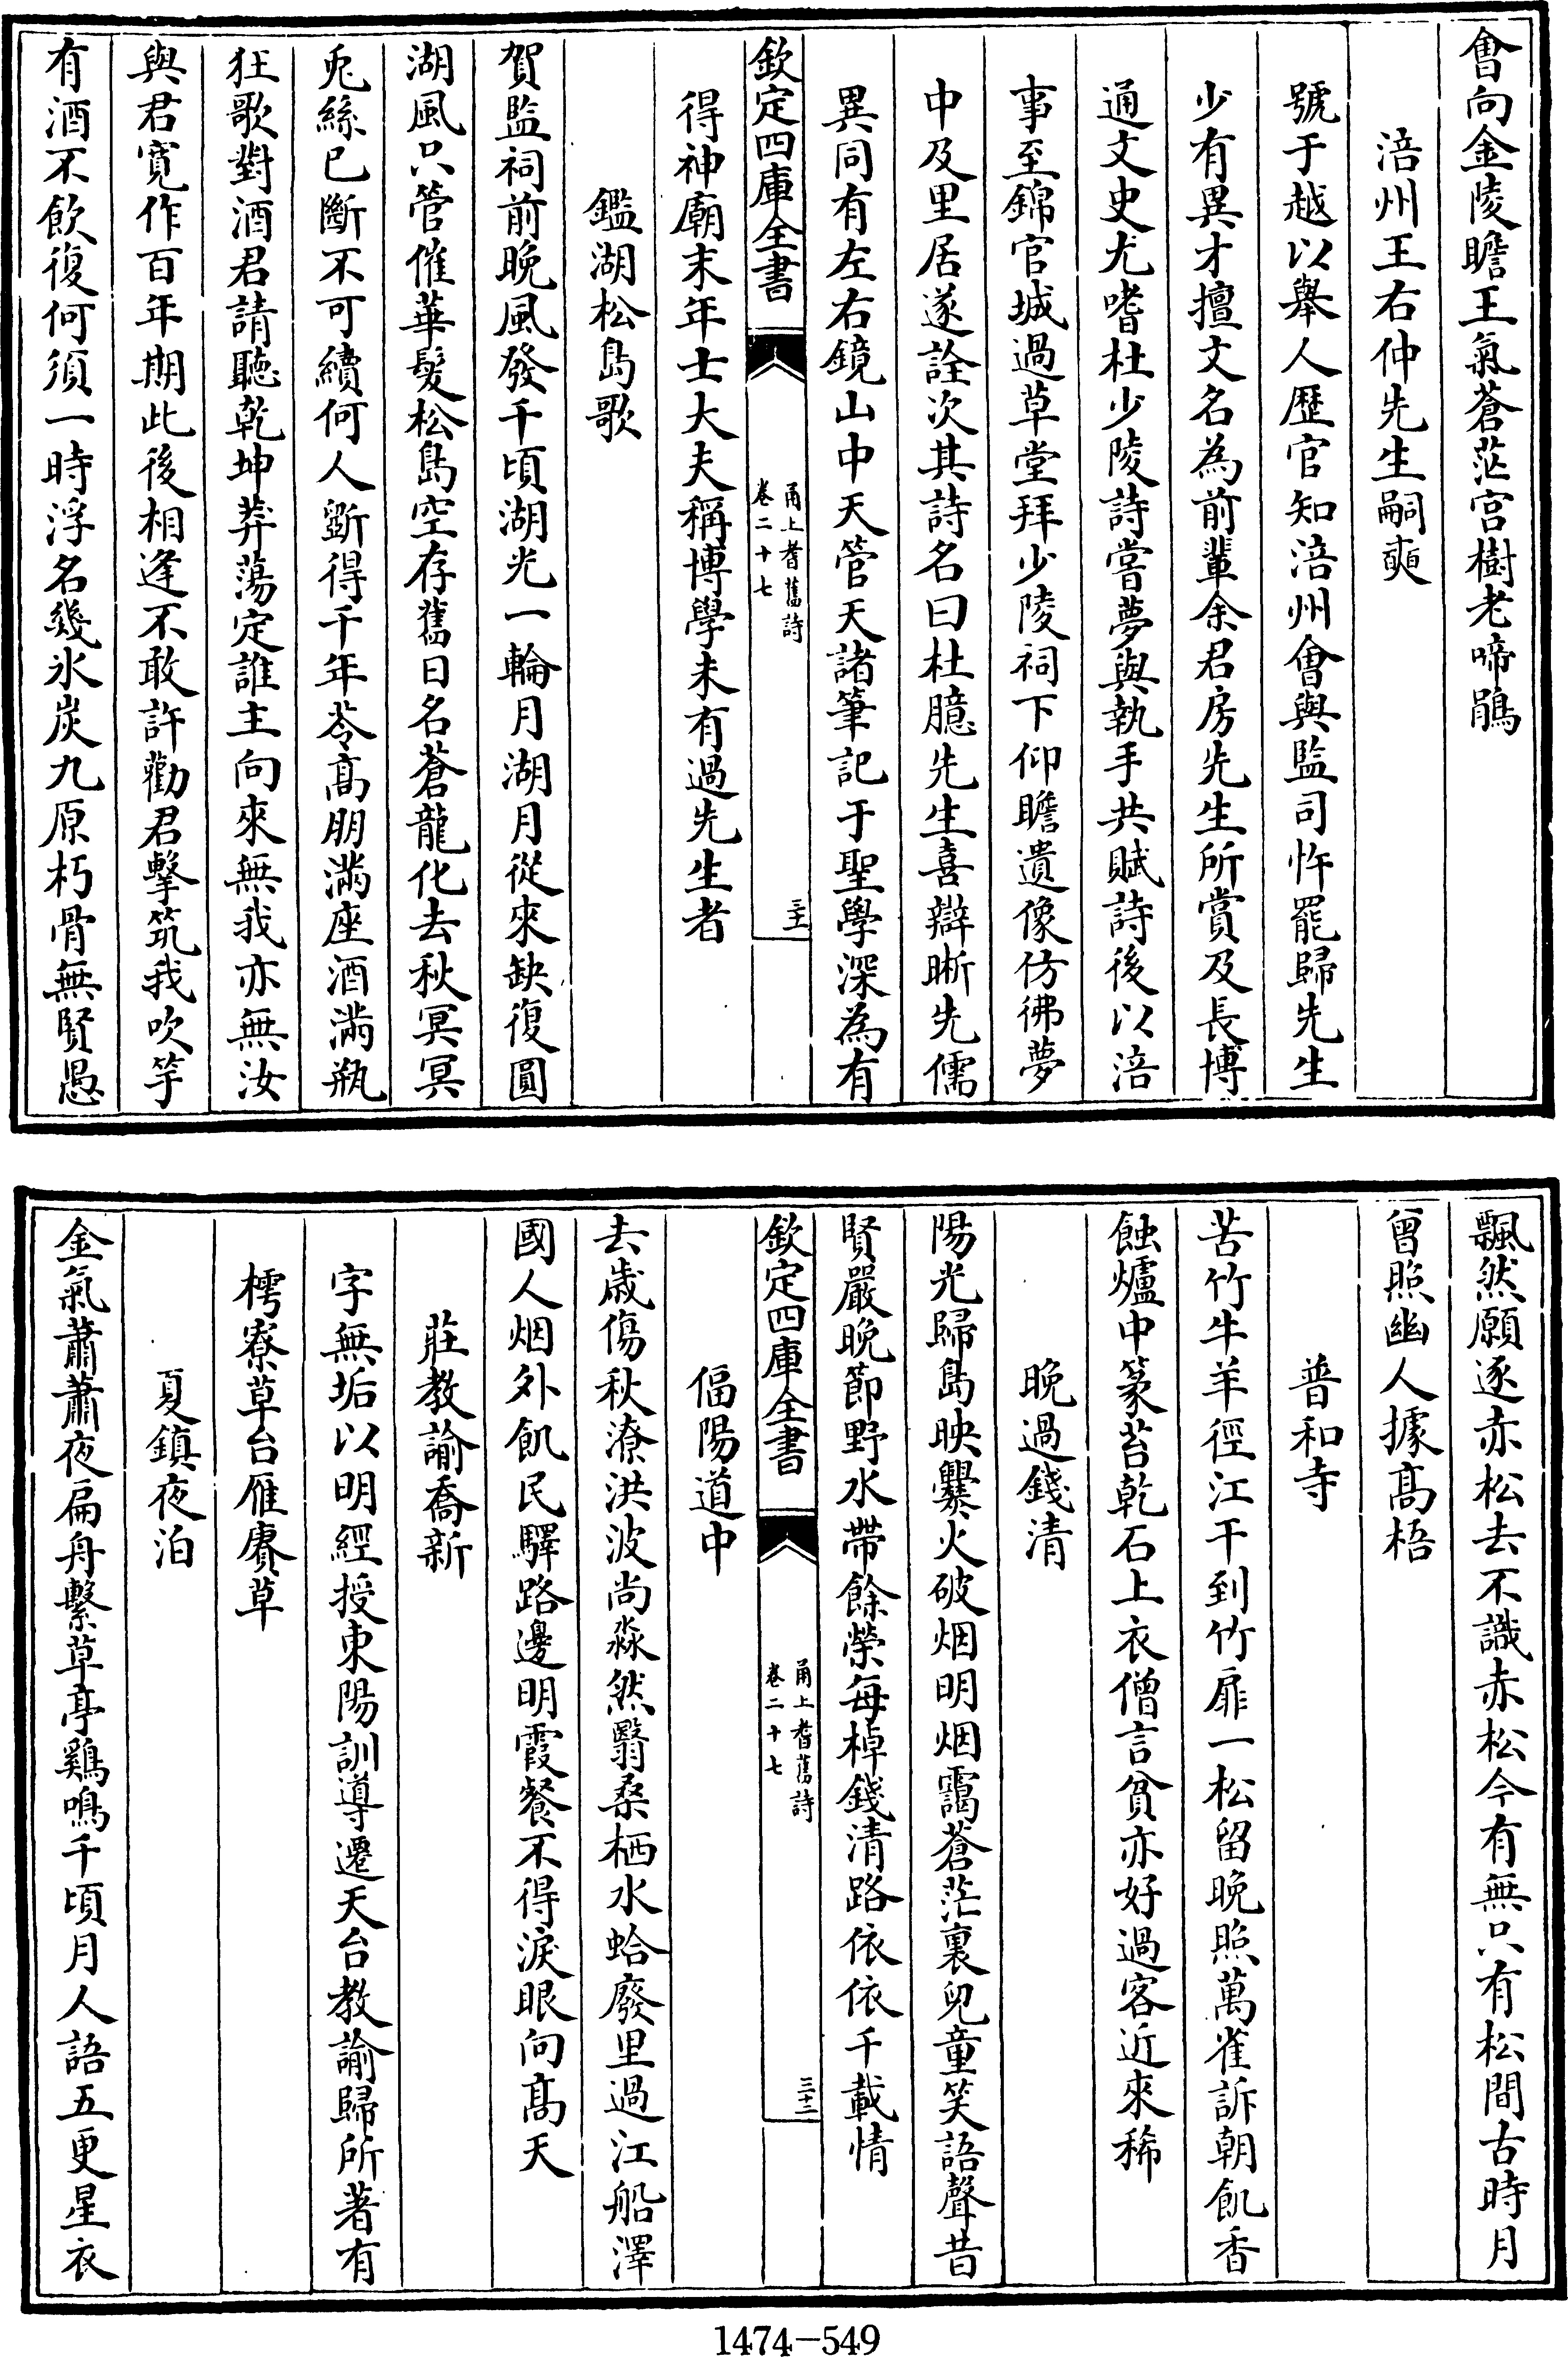 會向金陵瞻王氣蒼茫宮樹老啼鵑
涪州王右仲先生嗣奭
號于越以舉人歷官知涪州會與監司忤罷歸先生
少有異才擅文名為前輩余君房先生所賞及長博
通文史尤嗜杜少陵詩嘗夢與執手共賦詩後以涪
事至錦官城過草堂拜少陵祠下仰瞻遺像仿彿夢
中及里居遂詮次其詩名曰杜臆先生喜辯晰先儒
異同有左右鏡山中天管天諸筆記于聖學深為有
欽定四庫全書
甬上耆舊詩
卷二十七
三十一
得神廟末年士大夫稱博學未有過先生者
鑑湖松島歌
賀監祠前晚風發千頃湖光一輪月湖月從來缺復圓
湖風只管催華髮松島空存舊日名蒼龍化去秋冥冥
兎絲已斷不可續何人斵得千年苓高朋滿座酒滿瓶
狂歌對酒君請聽乾坤莽蕩定誰主向來無我亦無汝
與君寛作百年期此後相逢不敢許勸君擊筑我吹竽
有酒不飲復何須一時浮名幾氷炭九原朽骨無賢愚
飄然願逐赤松去不識赤松今有無只有松間古時月
曾照幽人據高梧
普和寺
苦竹牛羊徑江干到竹扉一松留晚照萬雀訴朝飢香
蝕爐中篆苔乾石上衣僧言貧亦好過客近來稀
晚過錢清
陽光歸島映爨火破烟明烟靄蒼茫裏兒童笑語聲昔
賢嚴晚節野水帶餘榮每棹錢清路依依千載情
欽定四庫全書
甬上耆舊詩
卷二十七
三十二
偪陽道中
去歲傷秋潦洪波尚淼然翳桑栖水蛤廢里過江船澤
國人烟外飢民驛路邊明霞餐不得淚眼向高天
莊教諭喬新
字無垢以明經授東陽訓導遷天台教諭歸所著有
樗寮草台雁賡草
夏鎮夜泊
金氣蕭蕭夜扁舟繫草亭鷄鳴千頃月人語五更星衣
1474-549